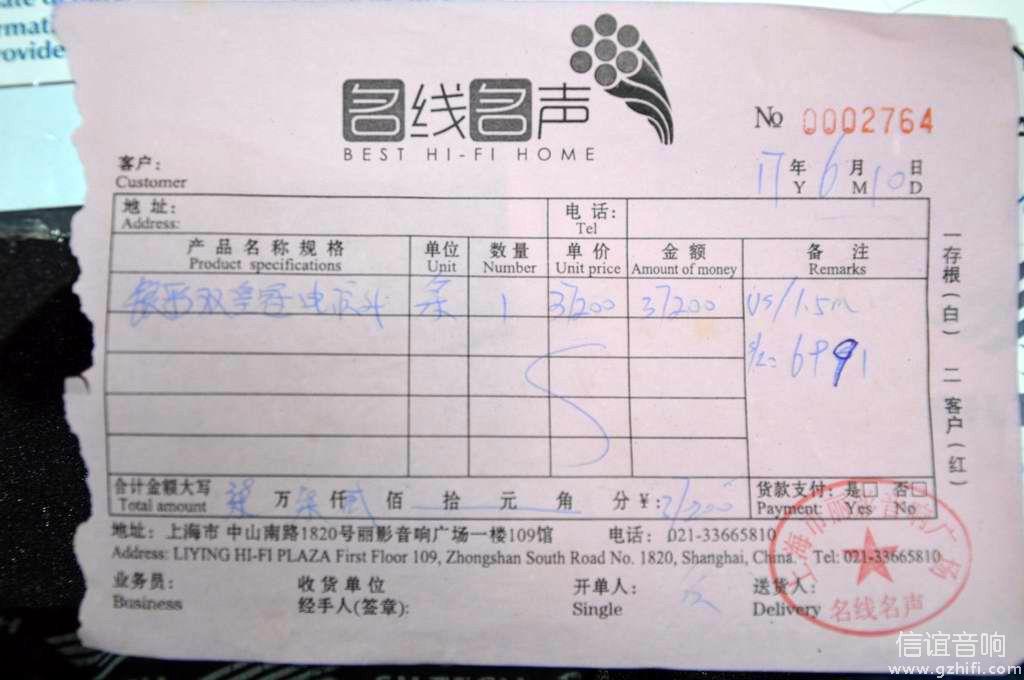 ormat
rovide
名线名声
BEST HI-FI HOME
№ 0002764
客户:
Customer
17 年 6 月 10 日
Y M D
地址: 电话:
Address: Tel
产品名称规格 单位 数量 单价 金额 备注
Product specifications Unit Number Unit price Amount of money Remarks
双皇冠电源 条 1 37200 37200 US/1.5m
6991
合计金额大写 万 仟 贰 佰 拾 元 角 分 ¥: 37200 货款支付: 是□ 否□
Total amount Payment: Yes No
地址: 上海市 中山南路1820号丽影音响广场一楼109馆 电话: 021-33665810
Address: LIYING HI-FI PLAZA First Floor 109, Zhongshan South Road No. 1820, Shanghai, China. Tel: 021-33665810
业务员: 收货单位 开单人: 送货人:
Business 经手人(签章): Single Delivery
一存根(白) 二客户(红)
上海市丽影音响广场
名线名声
信谊音响
www.gzhifi.com